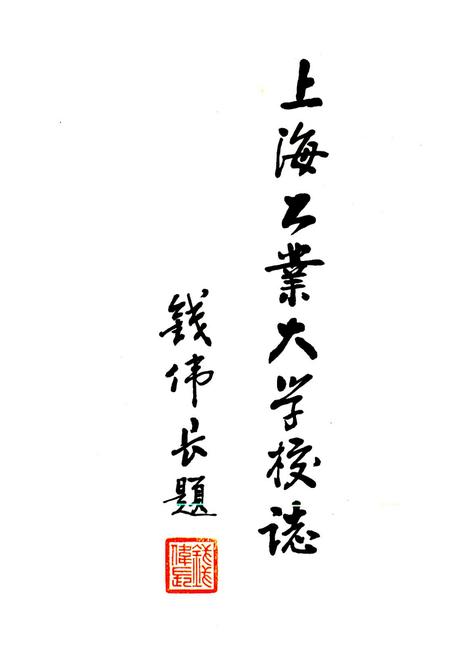 上海工業大学校誌
钱伟长題
錢偉長